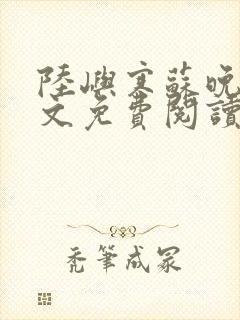 陸嶼寒蘇晚
文免費閱讀
禿筆成冢